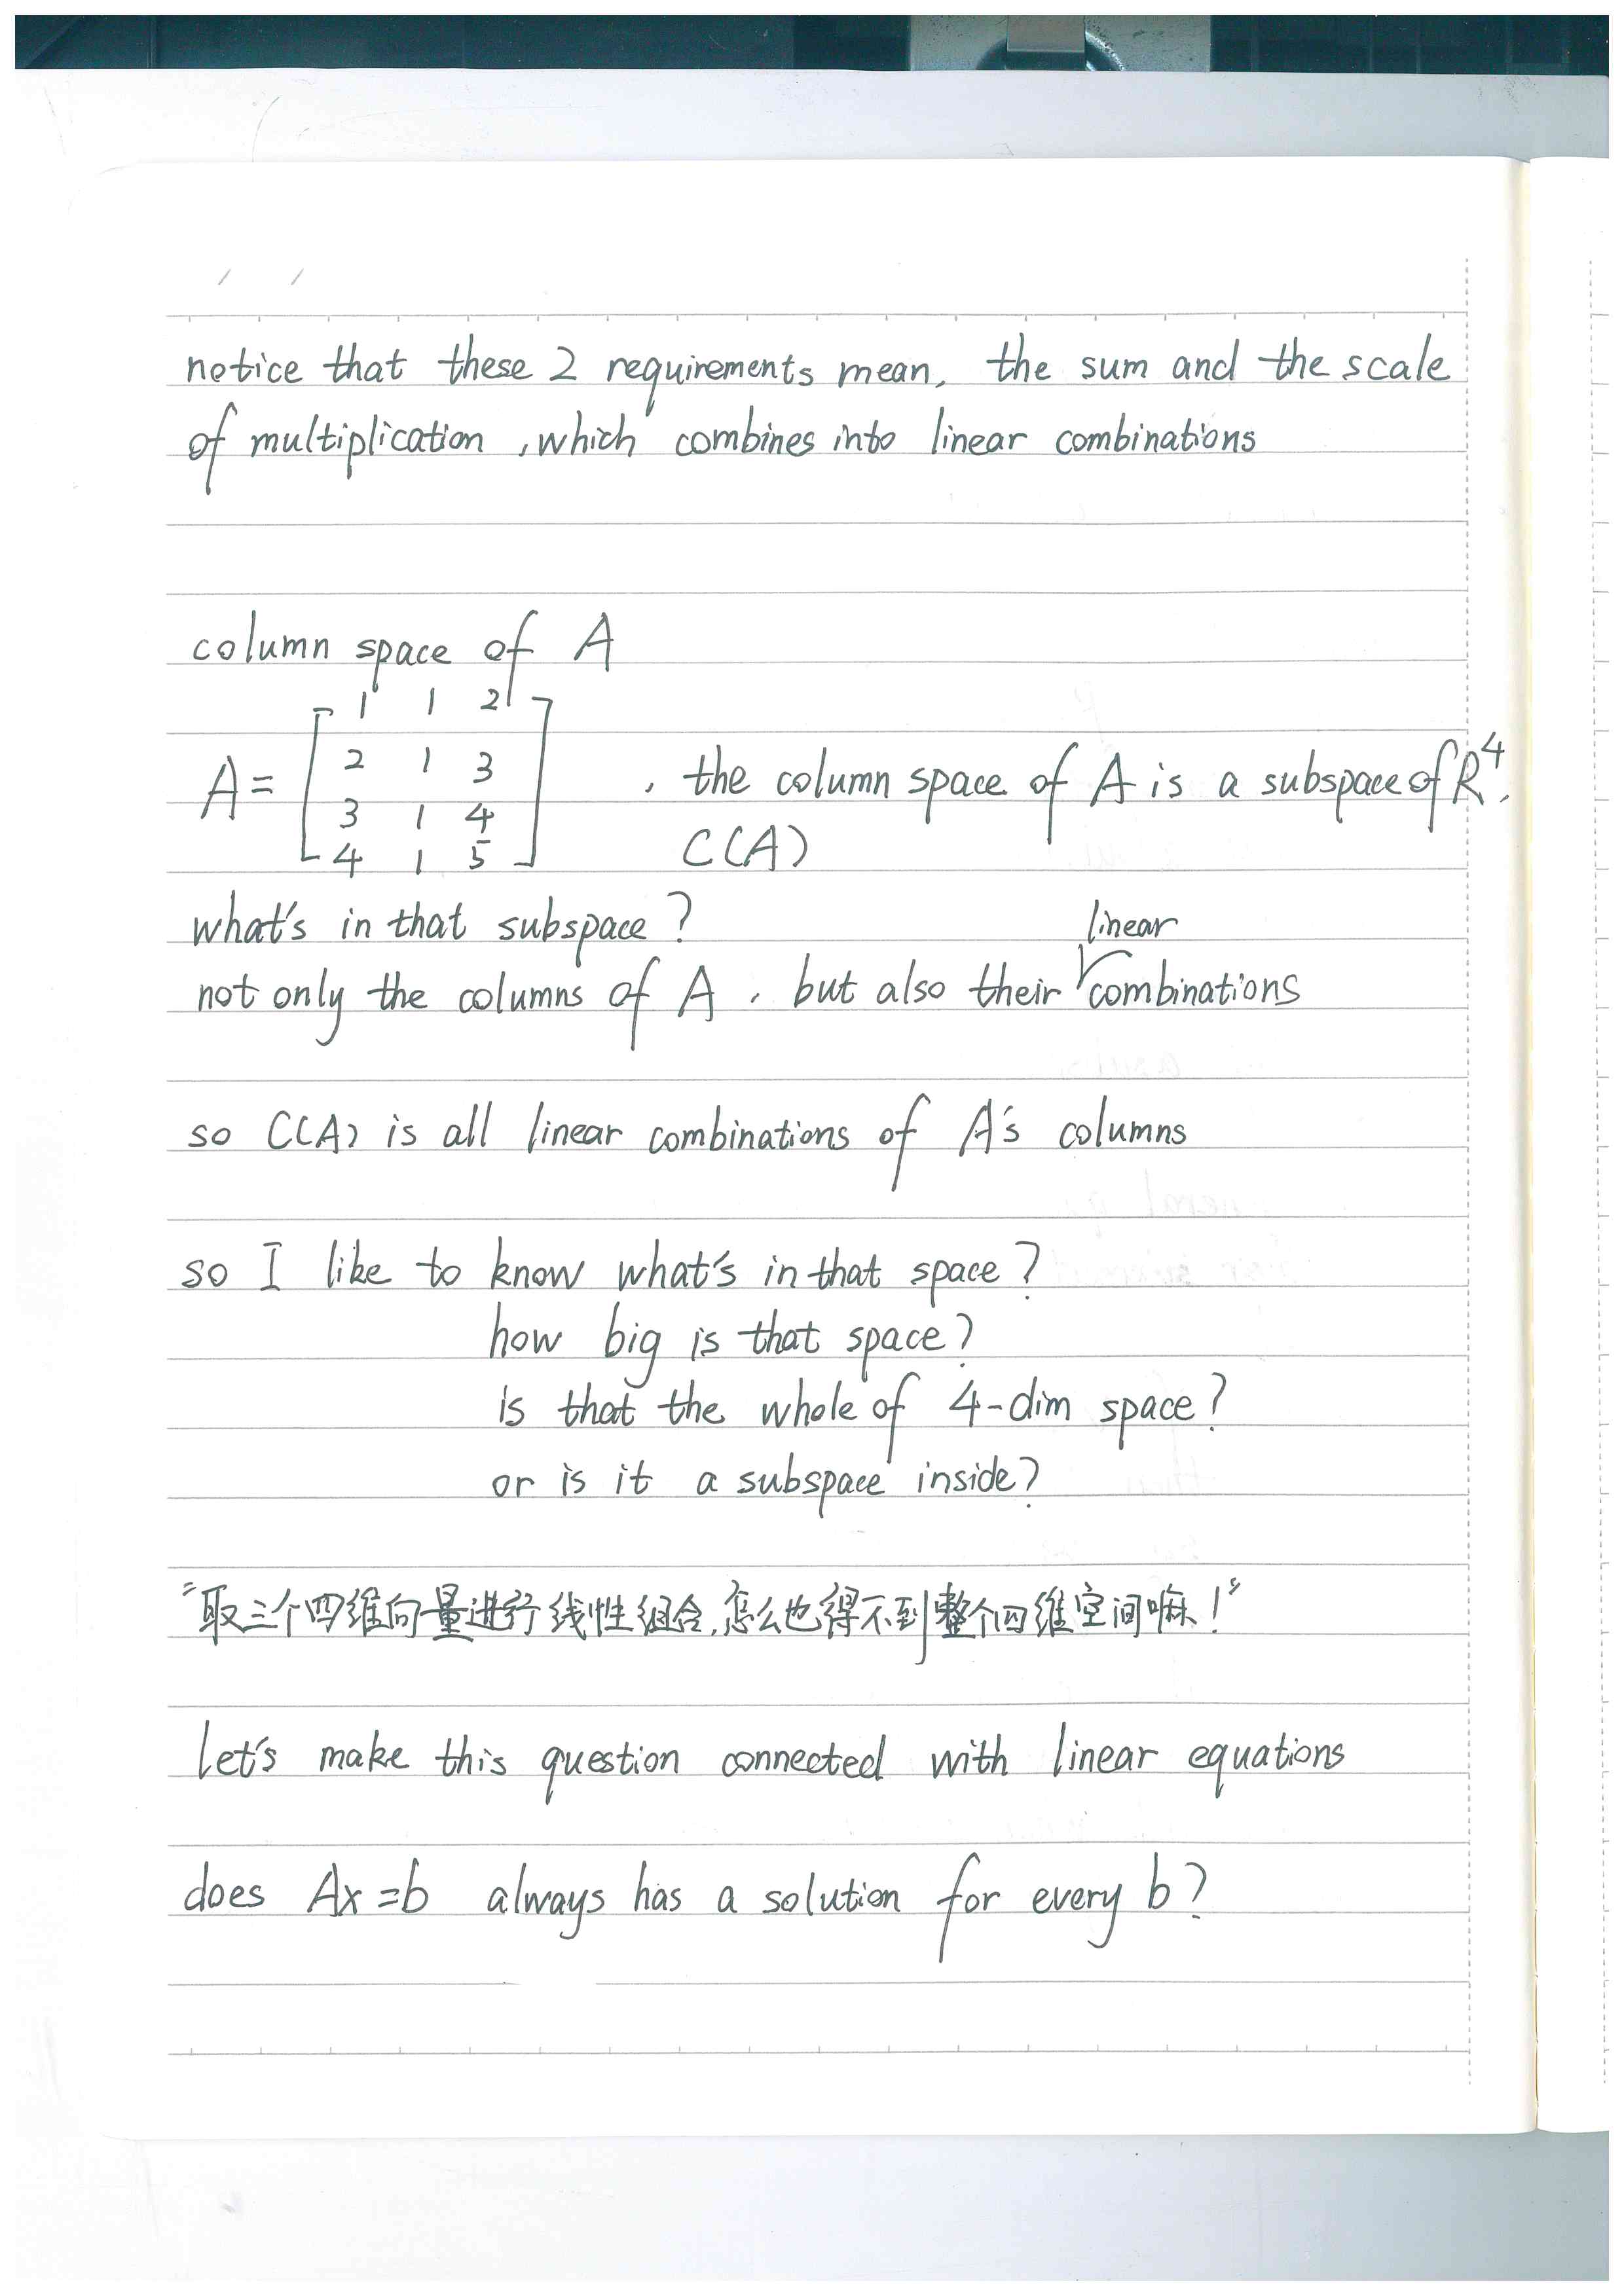 notice that these 2 requirements mean, the sum and the scale
of multiplication, which combines into linear combinations
column space of A
A = [1 1 2
2 1 3
3 1 4
4 1 5], the column space of A is a subspace of R⁴,
C(A)
what's in that subspace?
not only the columns of A, but also their linear combinations
so C(A) is all linear combinations of A's columns
so I like to know what's in that space?
how big is that space?
is that the whole of 4-dim space?
or is it a subspace inside?
"取三个四维向量进行线性组合,怎么也得不到整个四维空间嘛!"
let's make this question connected with linear equations
does Ax=b always has a solution for every b?